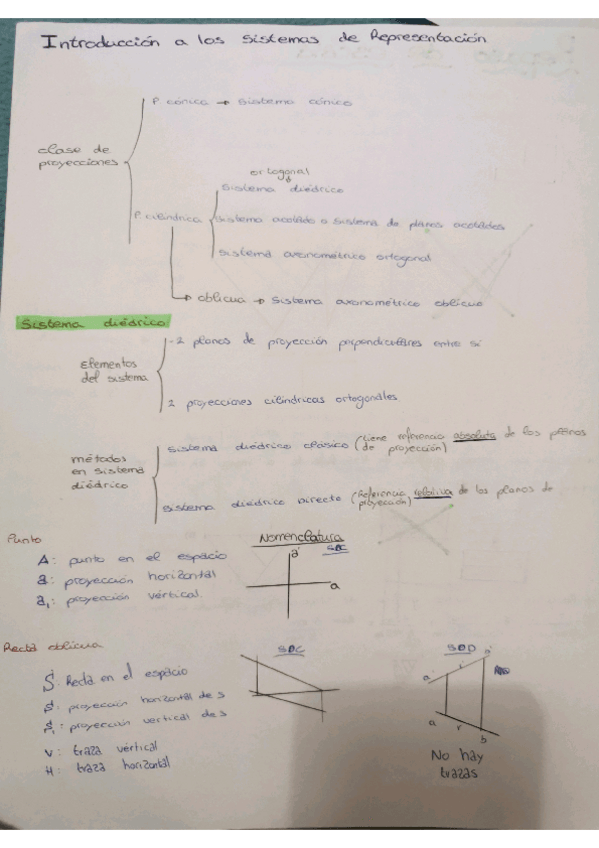 Introducción a los Sistemas de Representación
P. cónica → Sistema cónico
clase de
proyecciones
ortogonal
Sistema diédrico
P. cilíndrica
sistema acotado o sistema de planos acotados
Sistema axonométrico ortogonal
oblicua → Sistema axonométrico oblicuo
Sistema diédrico
Elementos
del sistema
-2 planos de proyección perpendiculares entre si
2 proyecciones cilindricas ortogonales
métodos
en sistema
diédrico
sistema diédrico clásico (tiene referencia absoluta de los planos
de proyección)
sistema diédrico Directo (Referencia relativa de los planos de
proyección)
Punto
Nomenclatura
SDC
A: punto en el espacio
a: proyección horizontal
a₁: proyección vértical
a'
a
Recta oblicua
SDC
SDD
S: Recta en el espacio
s: proyección horizontal de s
s₁: proyección vertical de s
v: traza vértical
H: traza horizontal
a'
r'
a
r
b
No hay
trazas